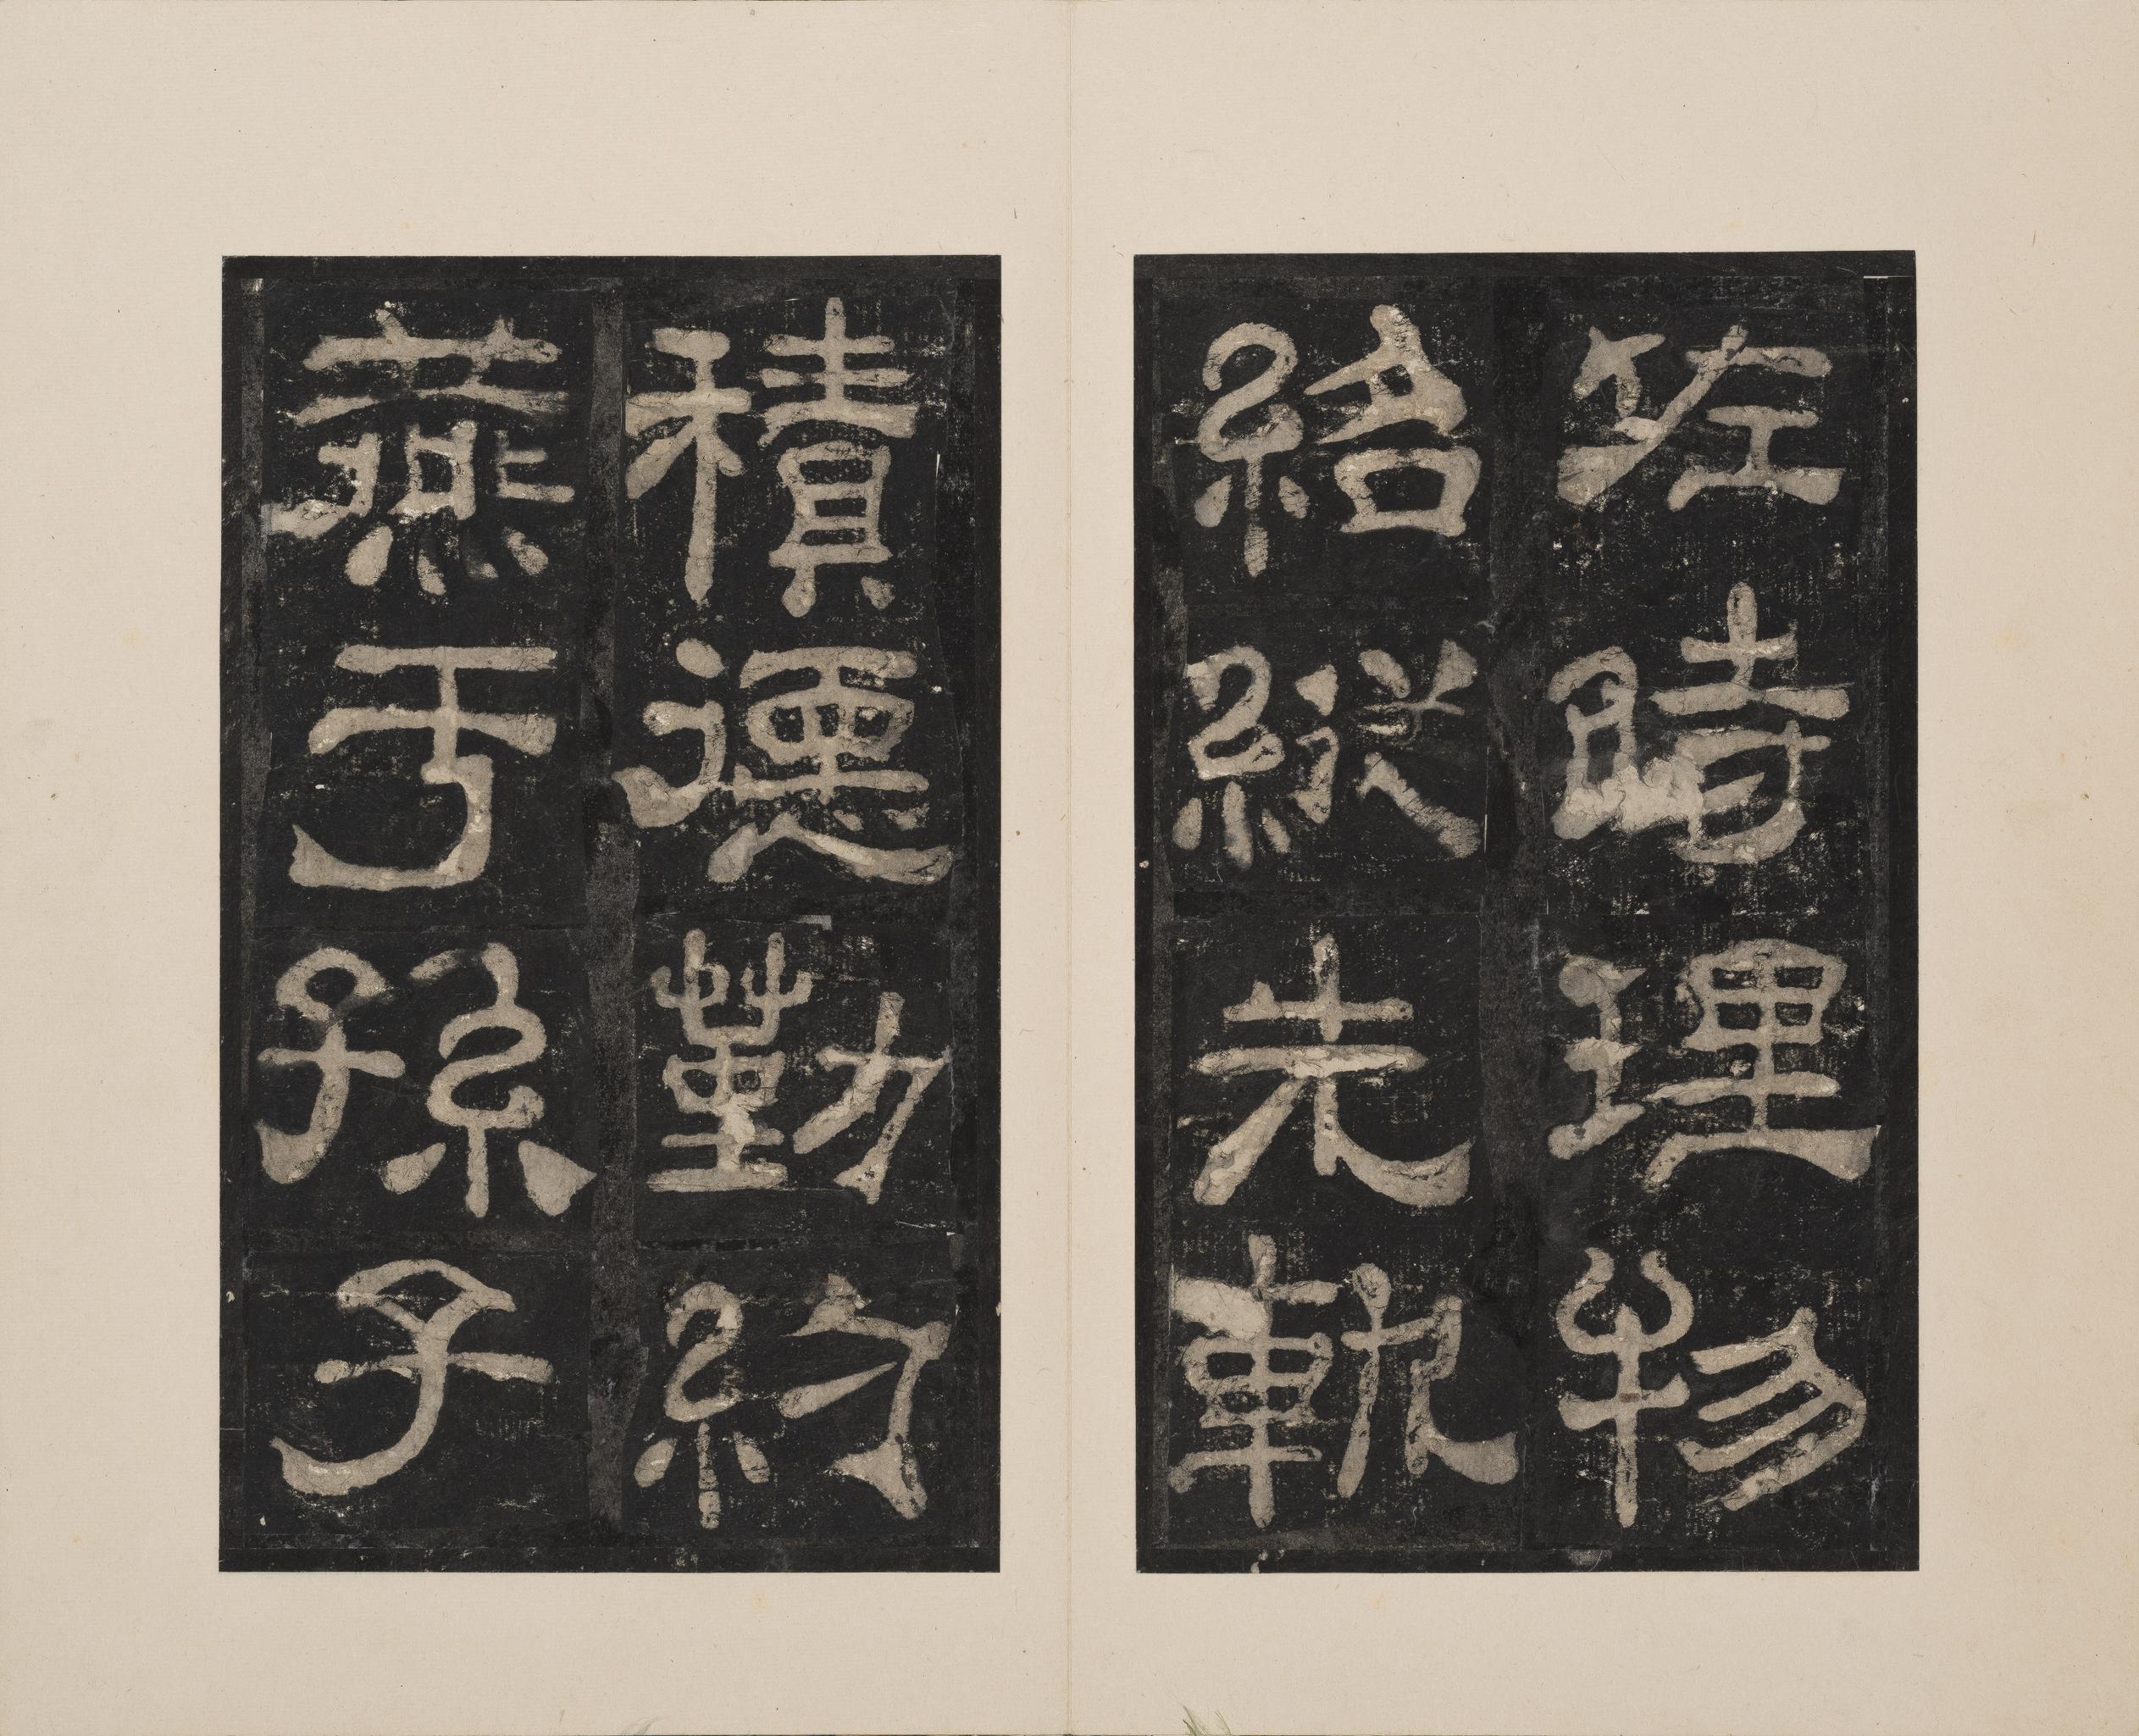 佐時理物
紹縱先軌
積德勤紹
燕于孫子